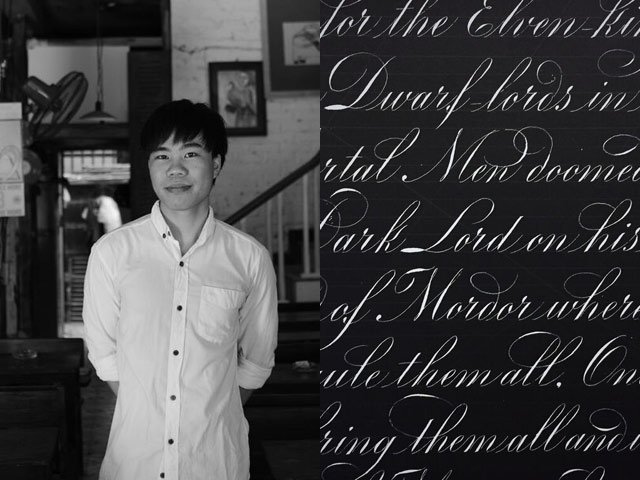 for the Elven-ki
Dwarf-lords in
rtal Men doomed
Dark Lord on his
of Mordor where
rule them all. On
bring them all and i